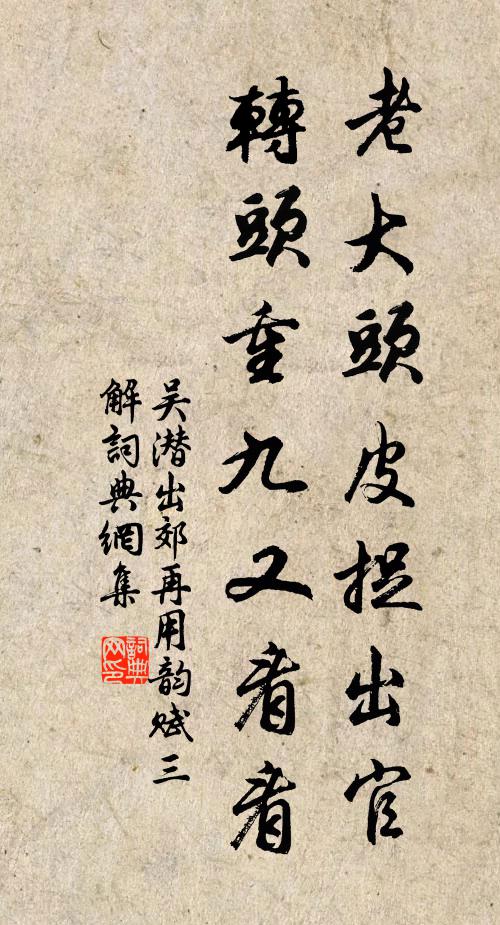 老大頭皮捉出官
轉頭重九又看看
吴潜出郊再用韵赋三
解詞典網集
詞典
网印